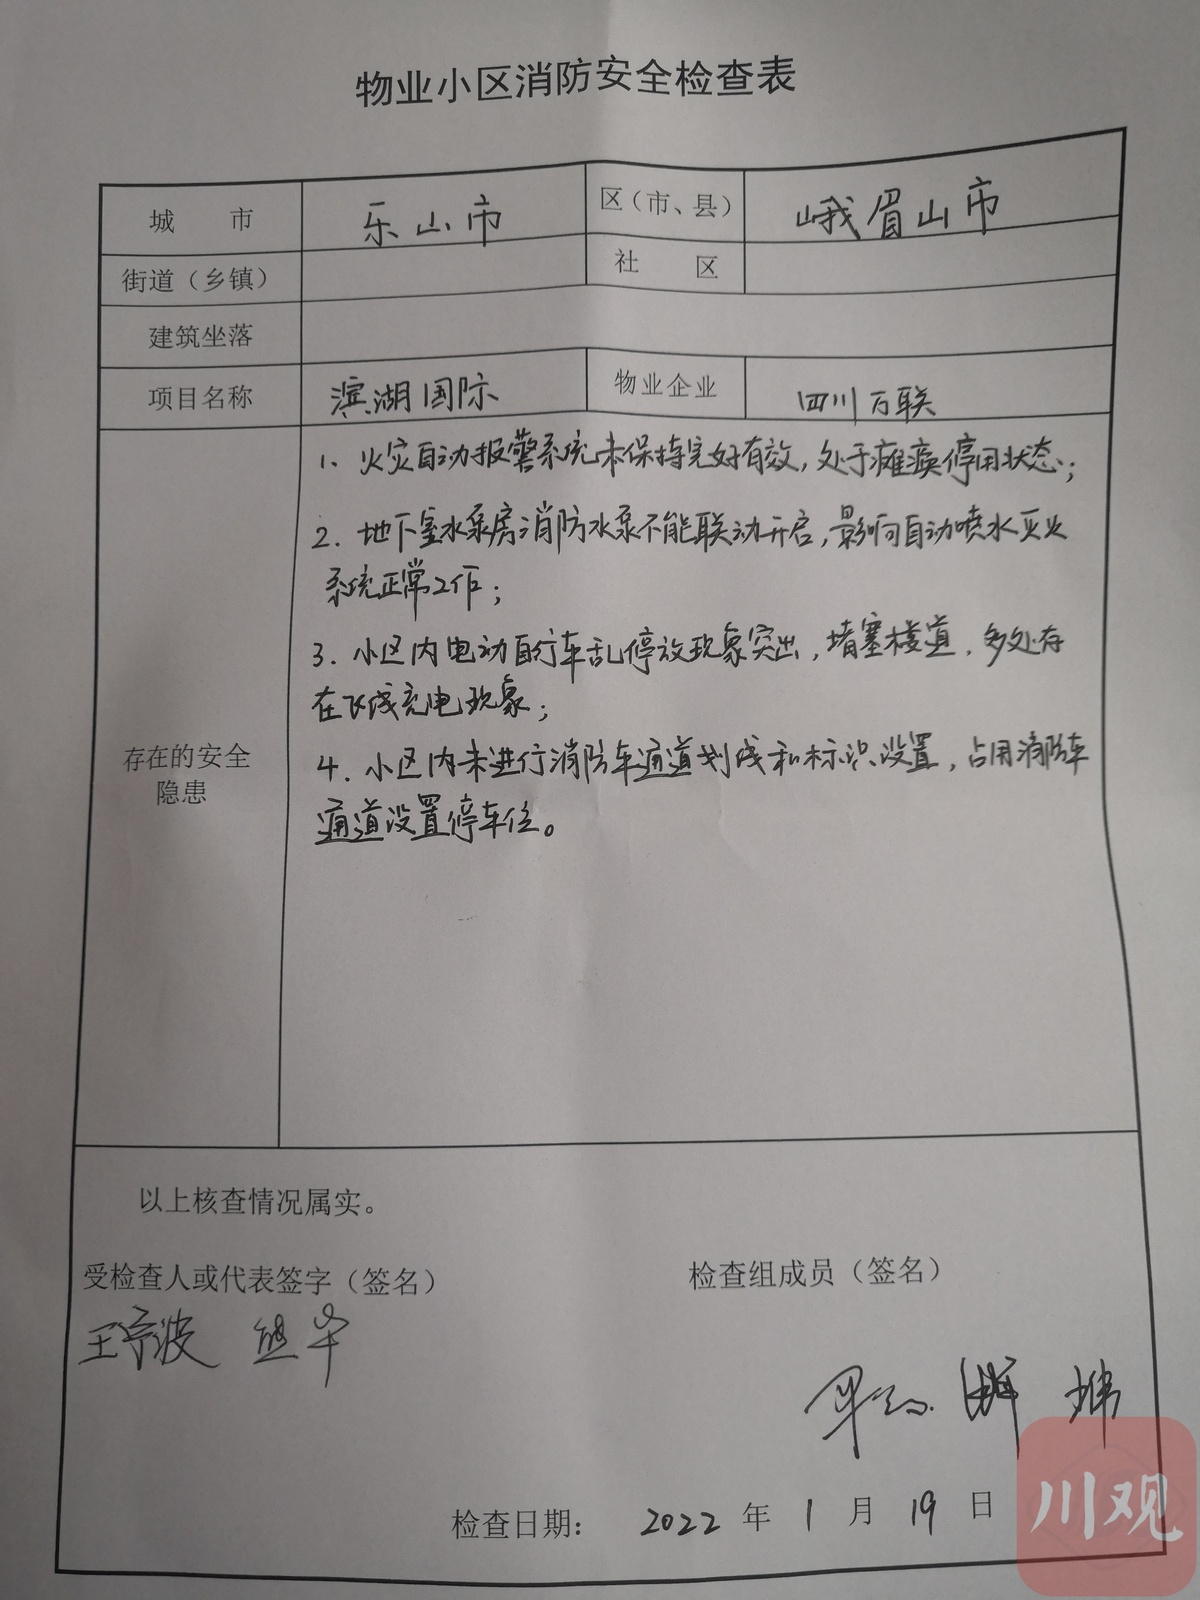 物业小区消防安全检查表
城 市 乐山市 区（市、县） 峨眉山市
街道（乡镇） 社 区
建筑坐落
项目名称 滨湖国际 物业企业 四川万联
1. 火灾自动报警系统未保持完好有效，处于瘫痪停用状态；
2. 地下室水泵房消防水泵不能联动开启，影响自动喷水灭火
系统正常工作；
3. 小区内电动自行车乱停放现象突出，堵塞楼道，多处存
在飞线充电现象；
存在的安全
隐患
4. 小区内未进行消防车通道划线和标识设置，占用消防车
通道设置停车位。
以上核查情况属实。
受检查人或代表签字（签名） 检查组成员（签名）
检查日期： 2022 年 1 月 19 日
川观